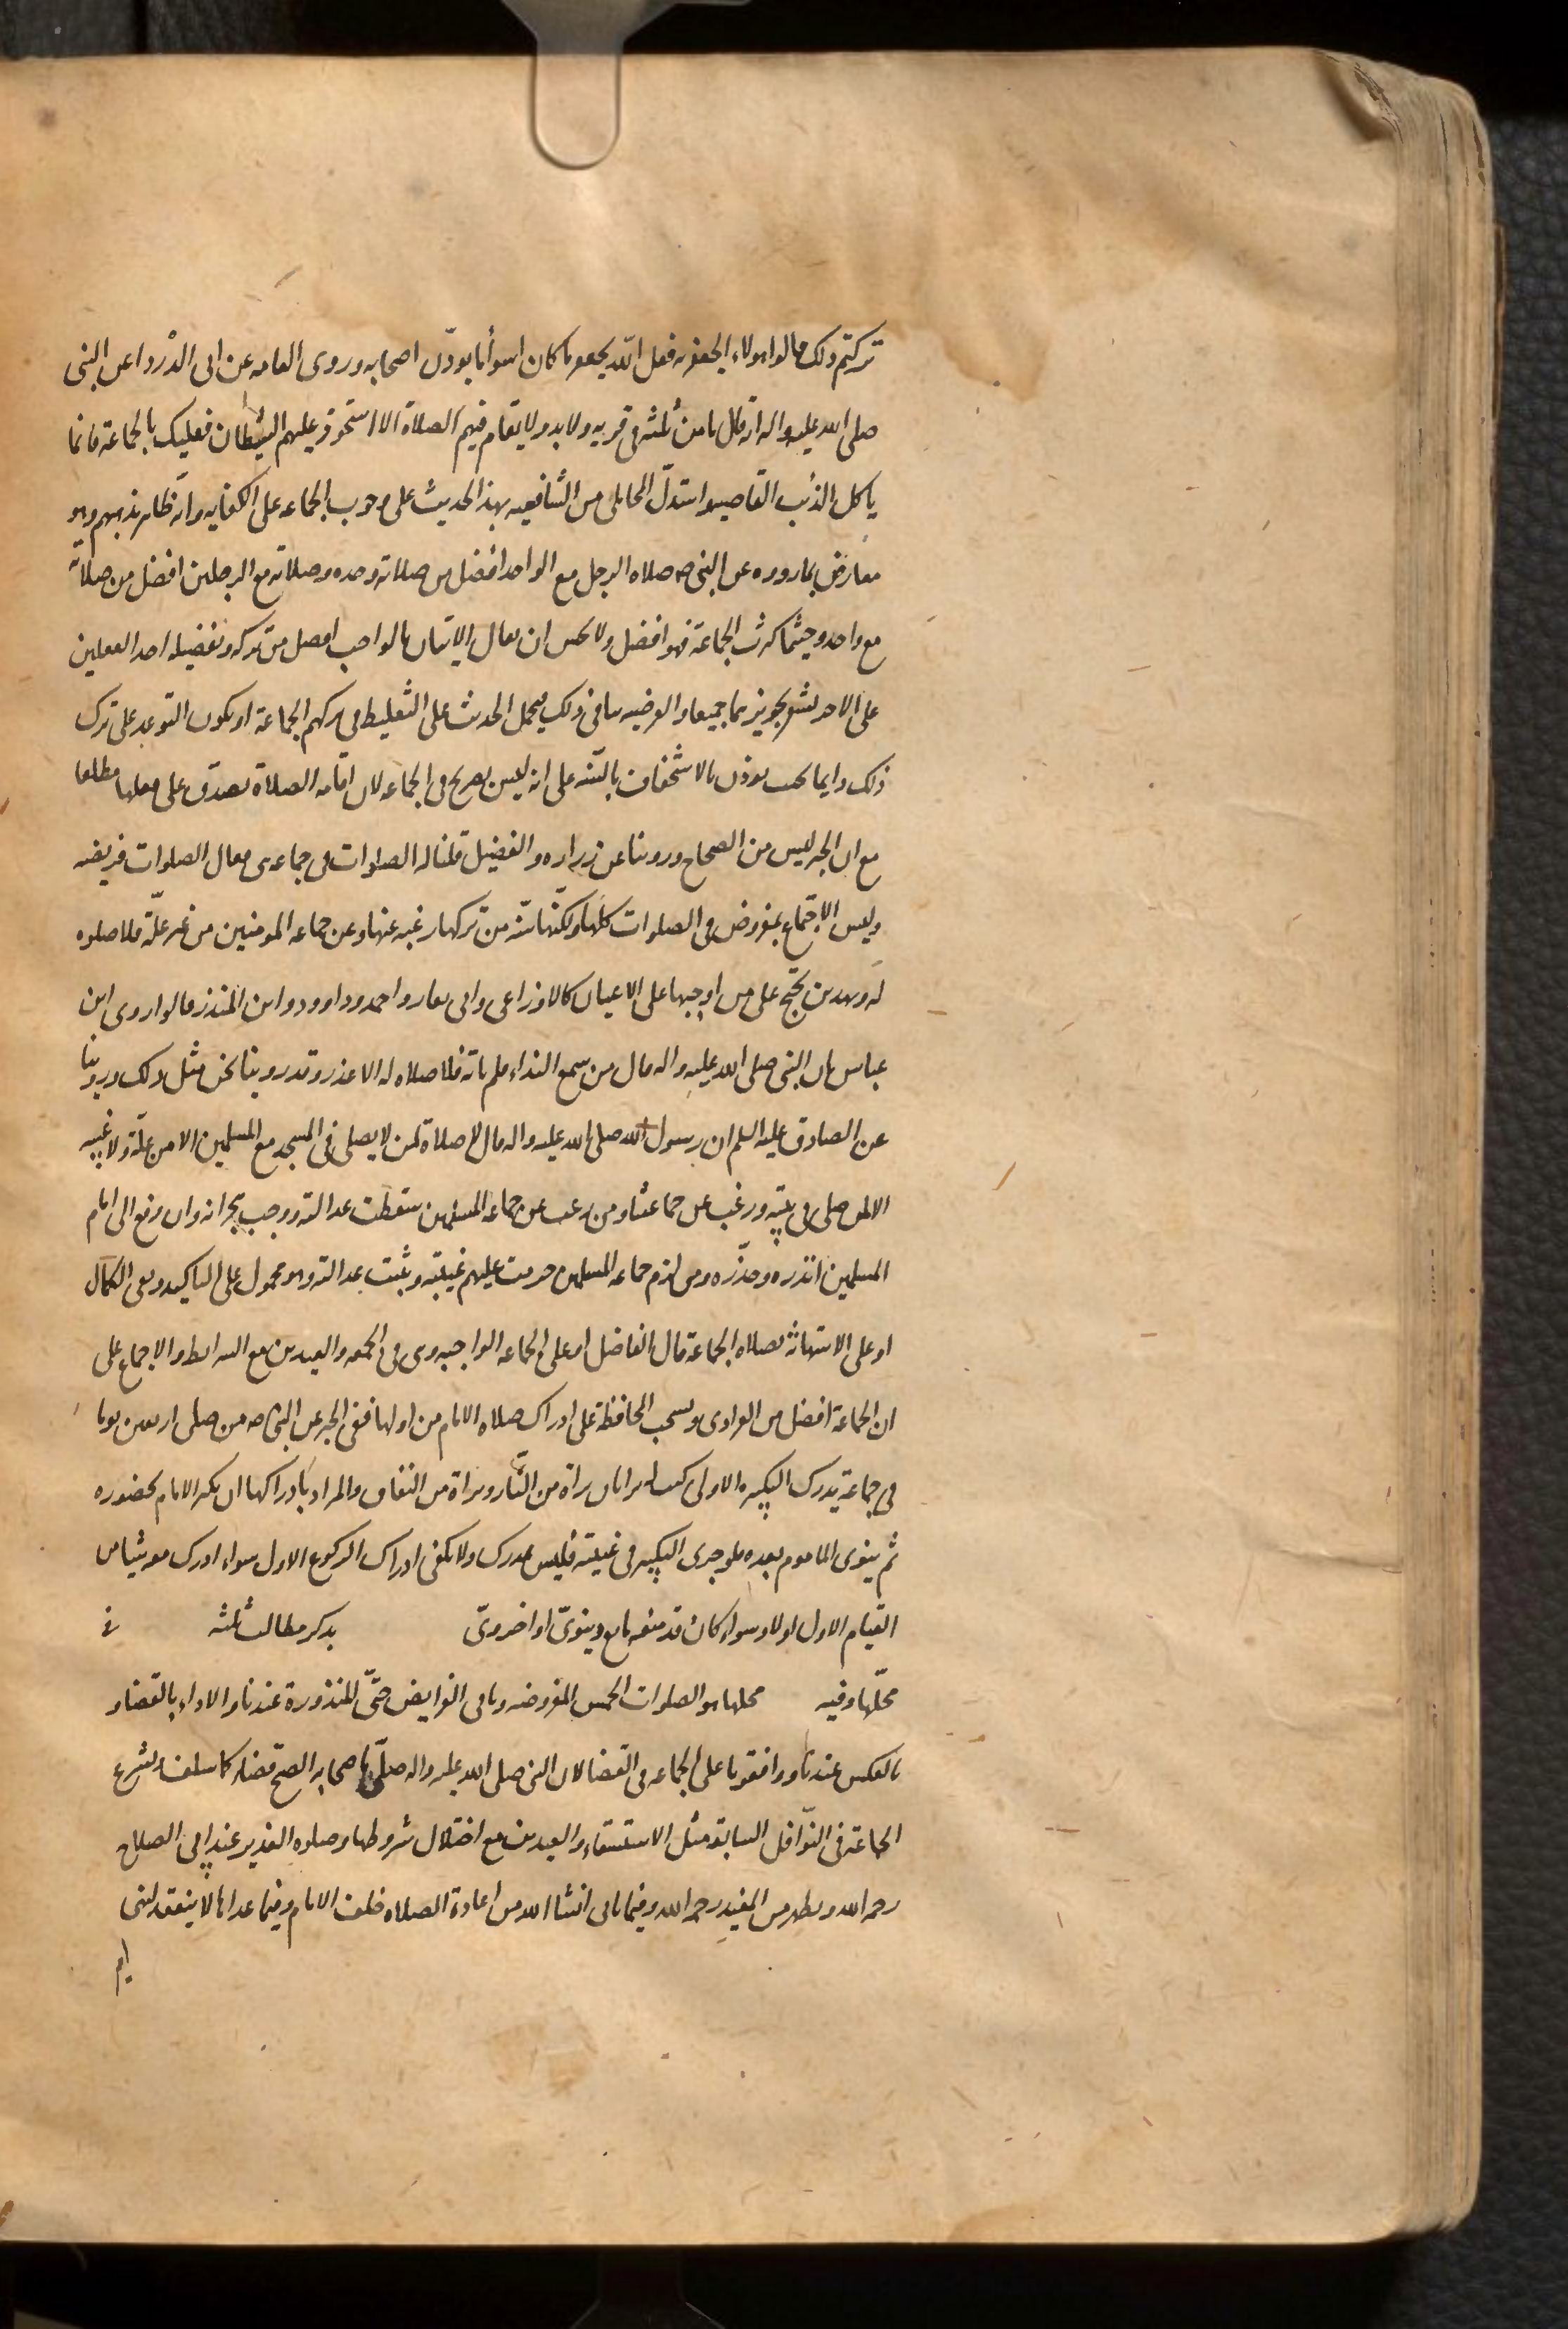 تركتم ذلك قالوا هولاء الجعفريه فعل الله بجعفر ما كان اسوأ ما يودّب اصحابه وروى العامه عن ابى الدرداء عن النبى
صلى الله عليه واله انه قال ما من ثلثه فى قريه ولا بدو ولا يقام فيهم الصلاة الا استحوذ عليهم الشيطان فعليك بالجماعة فانما
ياكل الذئب القاصيه واستدلّ المحاملى من الشافعيه بهذا الحديث على وجوب الجماعه على الكفايه وانّه ظاهر مذهبهم وهو
معارض بما رووه عن النبى ص صلاه الرجل مع الواحد افضل من صلاته وحده وصلاته مع الرجلين افضل من صلاته
مع واحد وحيثما كثرت الجماعة فهو افضل ولا يحسن ان يقال الاتيان بالواجب افضل من تركه وتفضيله احد الفعلين
على الاخر يشعر بتجويزهما جميعا والفرضيه ينافى ذلك فيحمل الحديث على التغليظ فى تركهم الجماعة او يكون التوعد على ترك
ذلك دايما بحيث يوذن بالاستخفاف بالسّنه على انه ليس بصريح فى الجماعه لان اقامه الصلاة تصدق على فعلها مطلقا
مع ان الخبر ليس من الصحاح وروينا عن زراره والفضيل قلنا له الصلوات فى جماعه هى فقال الصلوات فريضه
وليس الاجتماع بمفروض فى الصلوات كلها ولكنّها سنّه من تركها رغبه عنها وعن جماعه المومنين من غير علّة فلا صلوه
له وبهذين يحتج على من اوجبها على الاعيان كالاوزاعى وابى ثور واحمد وداوود وابن المنذر قالوا روى ابن
عباس ان النبى صلى الله عليه واله قال من سمع النداء فلم ياته فلا صلاه له الا من عذر وقد روينا نحن مثل ذلك وروينا
عن الصادق عليه السلم ان رسول الله صلى الله عليه واله قال لا صلاة لمن لا يصلى فى المسجد مع المسلمين الا من علّة ولا غيبه
الا لمن صلى فى بيته ورغب عن جماعتنا ومن رغب عن جماعه المسلمين سقطت عدالته ووجب هجرانه وان رفع الى امام
المسلمين انذره وحذّره ومن لزم جماعه المسلمين حرمت عليهم غيبته وثبتت عدالته وهو محمول على التاكيد ونفى الكمال
او على الاستهانة بصلاه الجماعة قال الفاضل او على الجماعه الواجبه وهى فى الجمعه والعيدين مع الشرايط والاجماع على
ان الجماعة افضل من الفرادى ويستحب المحافظة على ادراك صلاه الامام من اولها ففى الخبر عن النبى ص من صلى اربعين يوما
فى جماعة يدرك التكبيره الاولى كتب له براتان براة من النّار وبراة من النفاق والمراد بادراكها ان يكبر الامام بحضوره
ثم ينوى الماموم بعده فلو جرى التكبير فى غيبته فليس بمدرك ولا يكفى ادراك الركوع الاول سواء ادرك معه شيئا من
القيام الاول اولا وسواء كان قد منعه مانع دينوىّ او اخروىّ يذكر مطالب ثلثه فى
محلّها وفيه محلها هو الصلوات الخمس المفروضه وباقى الفرايض حتّى المنذورة عندنا والاداء بالقضاء و
بالعكس عندنا ووافقونا على الجماعه فى القضا لان النبى صلى الله عليه واله صلّى باصحابه الصبح قضاء كما سلف وتشرع
الجماعة فى النّوافل السابقة مثل الاستسقاء والعيدين مع اختلال شروطها وصلوه الغدير عند ابى الصلاح
رحمه الله ويظهر من المفيد رحمه الله وفيما ياتى انشا الله من اعادة الصلاه خلف الامام وفيما عداها لا ينعقد لنهى